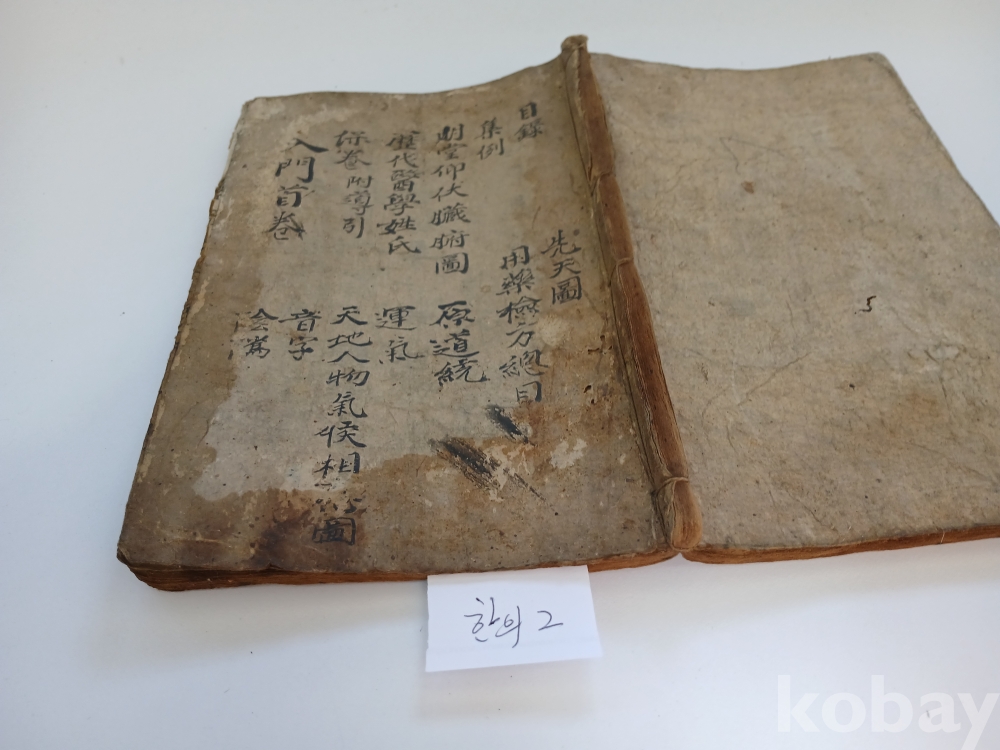 目錄 先天圖
集例 用藥檢方總目
明堂仰伏臟腑圖 原道統
歷代醫學姓氏 運氣
保養附導引 天地人物氣候相圖
入門首卷 音字
한의 2
kobay